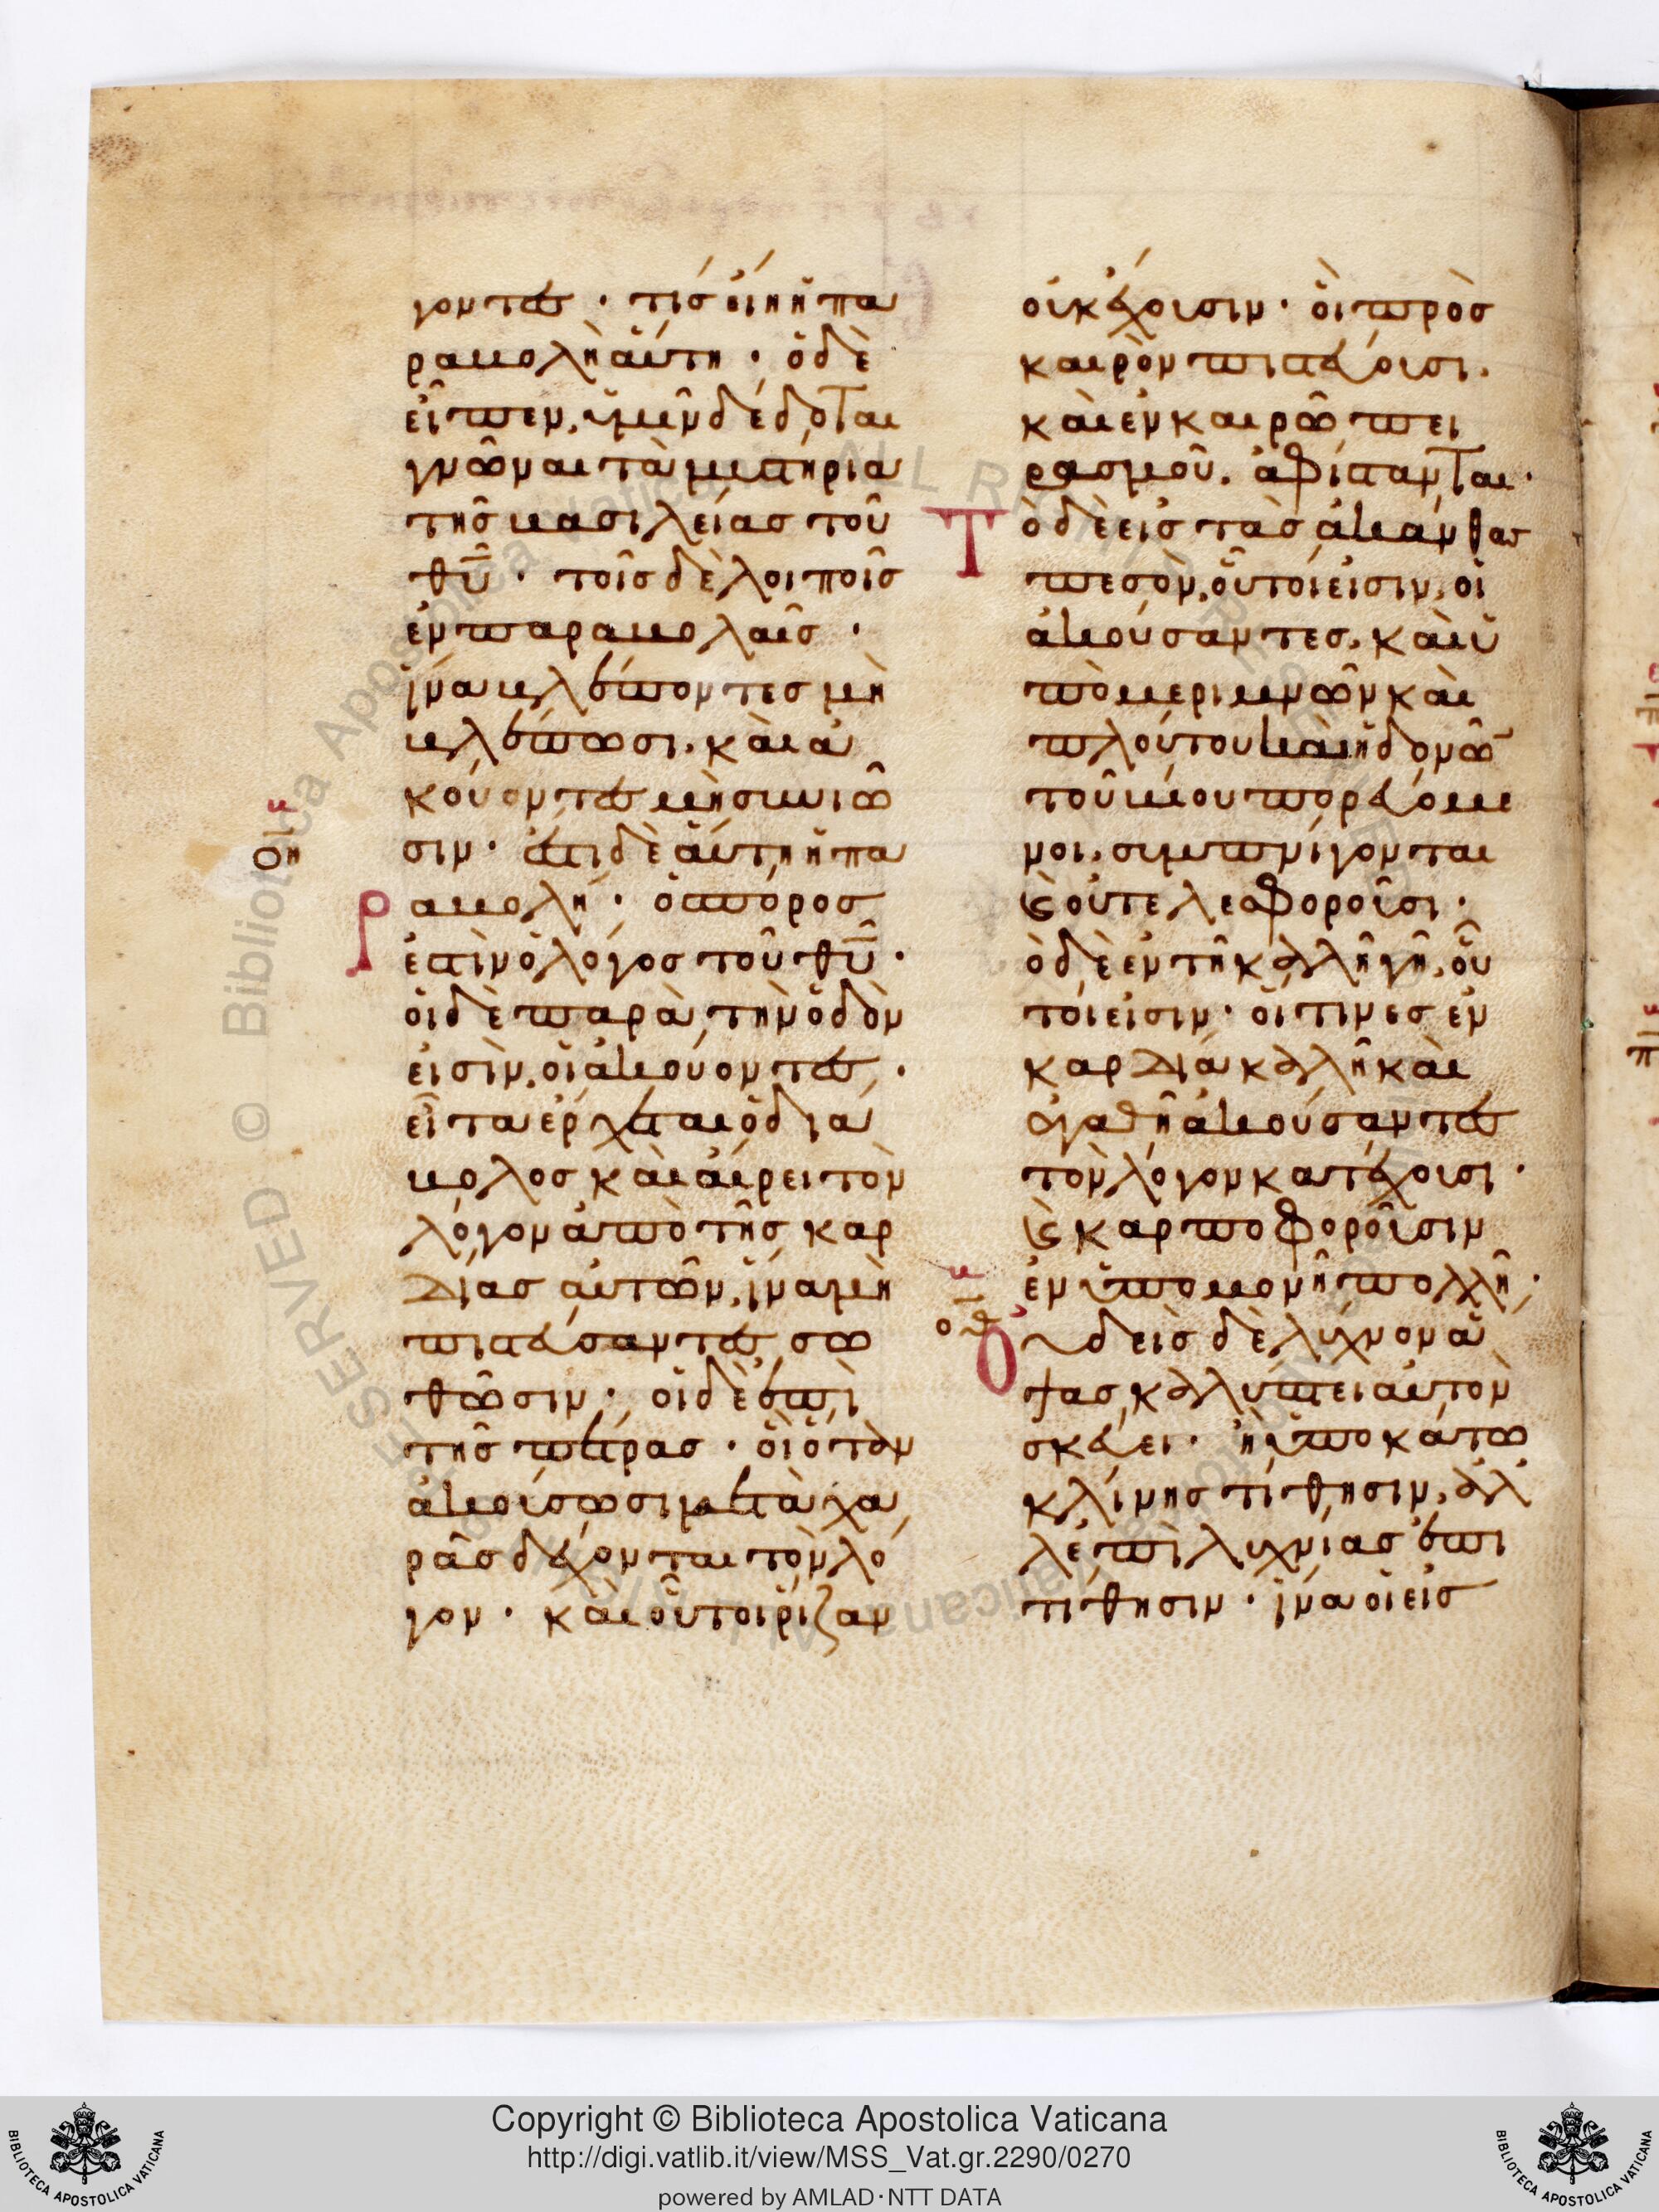 γοντες · τίς εἴη ἡ πα
ραβολὴ αὕτη · ὁ δὲ
εἶπεν, ὑμῖν δέδοται
γνῶναι τὰ μυστήρια
τῆς βασιλείας τοῦ
θῦ · τοῖς δὲ λοιποῖς
ἐν παραβολαῖς ·
ἵνα βλέποντες μὴ
βλέπωσι. καὶ ἀ
κούοντες μὴ συνιῶ
σιν · ἔστι δὲ αὕτη ἡ πα
ραβολή · ὁ σπόρος
ἐστὶν ὁ λόγος τοῦ θῦ ·
οἱ δὲ παρὰ τὴν ὁδὸν
εἰσὶν, οἱ ἀκούοντες ·
εἶτα ἔρχεται ὁ διά
βολος καὶ αἴρει τὸν
λόγον ἀπὸ τῆς καρ
δίας αὐτῶν, ἵνα μὴ
πιστεύσαντες σω
θῶσιν · οἱ δὲ ἐπὶ
τῆς πέτρας · οἳ ὅταν
ἀκούσωσι μετὰ χα
ρᾶς δέχονται τὸν λό
γον · καὶ οὗτοι ῥίζαν
οὐκ ἔχουσιν · οἳ πρὸς
καιρὸν πιστεύουσι.
καὶ ἐν καιρῶ πει
ρασμοῦ. ἀφίστανται ·
Τὸ δὲ εἰς τὰς ἀκάνθας
πεσὸν, οὗτοι εἰσιν, οἱ
ἀκούσαντες, καὶ ὑ
πὸ μεριμνῶν καὶ
πλούτου καὶ ἡδονῶ
τοῦ βίου πορευόμε
νοι, συμπνίγονται
ϗ οὐ τελεσφοροῦσι ·
ὁ δὲ ἐν τῆ καλῆ γῆ, οὗ
τοι εἰσιν · οἵτινες ἐν
καρδία καλῆ καὶ
ἀγαθῆ ἀκούσαντες
τὸν λόγον κατέχουσι ·
ϗ καρποφοροῦσιν
ἐν ὑπομονῆ πολλῆ ·
Οὐδεὶς δὲ λύχνον ἅ
ψας, καλύπτει αὐτὸν
σκεύει · ἢ ὑποκάτω
κλίνης τίθησιν, ἀλ
λ' ἐπὶ λυχνίας ἐπι
τίθησιν · ἵνα οἱ εἰσ
Copyright © Biblioteca Apostolica Vaticana
http://digi.vatlib.it/view/MSS_Vat.gr.2290/0270
powered by AMLAD·NTT DATA